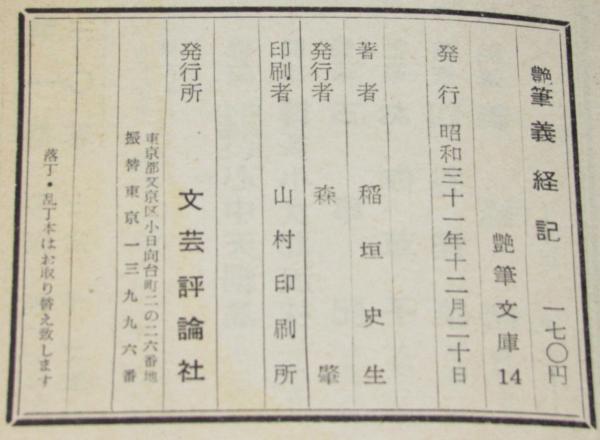 艶筆義経記 一七〇円
艶筆文庫14
発行 昭和三十一年十二月二十日
著者 稲垣史生
発行者 森肇
印刷者 山村印刷所
発行所 文芸評論社
東京都文京区小日向台町二の二六番地
振替東京一三九九六番
落丁・乱丁本はお取り替え致します